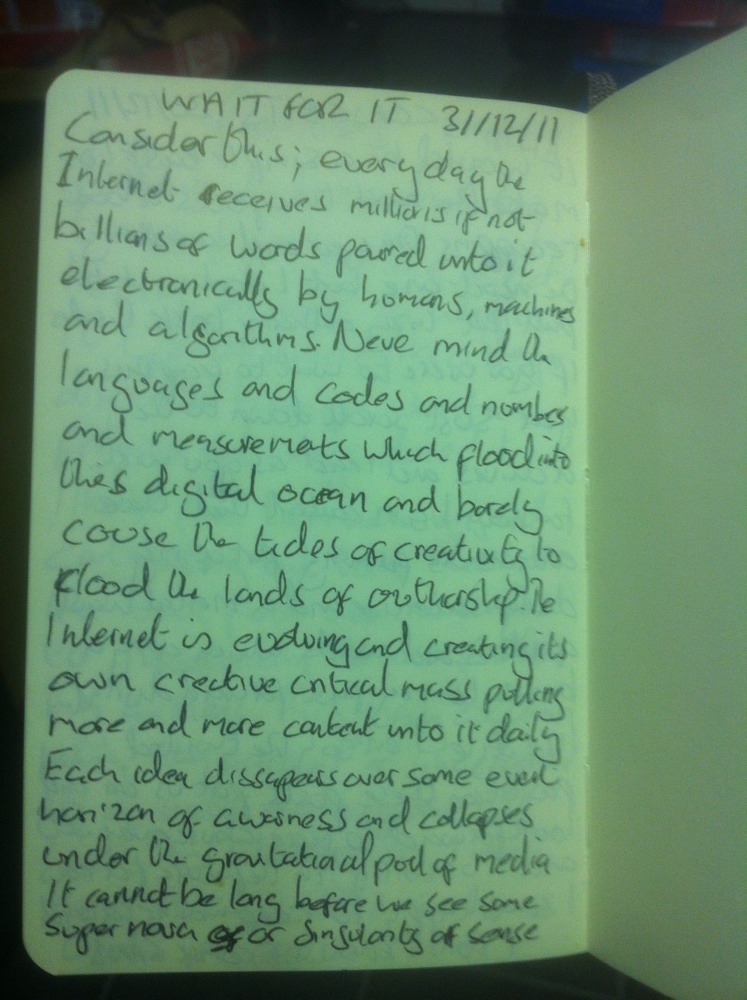 WAIT FOR IT 31/12/11
Consider this; every day the
Internet receives millions if not
billions of words poured unto it
electronically by humans, machines
and algorithms. Neve mind the
languages and codes and numbes
and measuremets which flood into
this digital ocean and barely
couse the tides of creativity to
flood the lands of authorship. The
Internet is evolving and creating its
own creative critical mass pulling
more and more content unto it daily
Each idea dissapears over some event
horizon of awarness and collapses
under the gravitational pool of media
It cannot be long before we see some
Super nova or singularity of sense